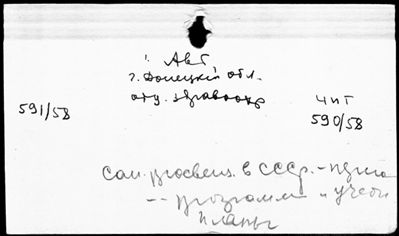 1. Авт
г. Донецкий обл.
отд. здравоохр
591/58
чит
590/58
Сан. просвещ. в СССР. -
-- программы и учебн
планы